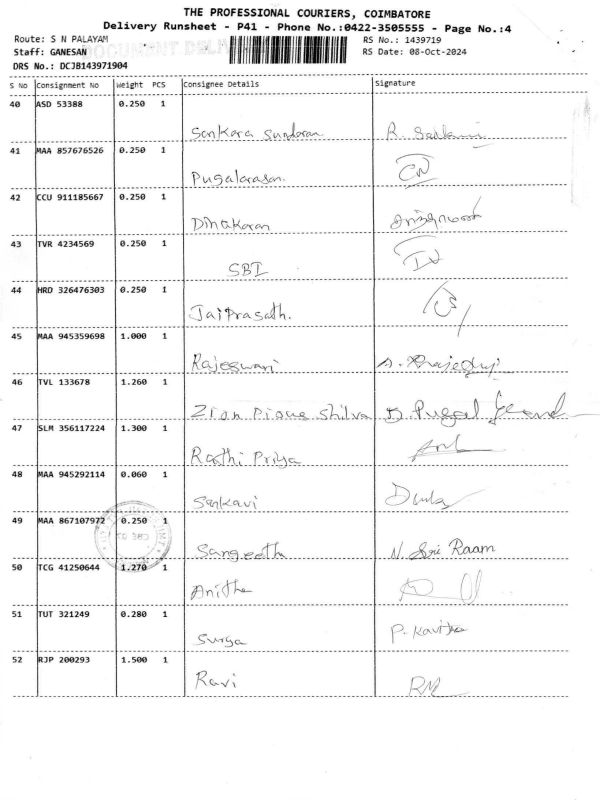 THE PROFESSIONAL COURIERS, COIMBATORE
Delivery Runsheet - P41 - Phone No.:0422-3505555 - Page No.:4
Route: S N PALAYAM RS No.: 1439719
Staff: GANESAN RS Date: 08-Oct-2024
DRS No.: DCJB143971904
S No Consignment No Weight PCS Consignee Details Signature
40 ASD 53388 0.250 1
Sankara Sundaran R.
41 MAA 857676526 0.250 1
Pugalarasan.
42 CCU 911185667 0.250 1
Dinakaran
43 TVR 4234569 0.250 1
SBI
44 HRD 326476303 0.250 1
Jaiprasath.
45 MAA 945359698 1.000 1
Rajeswari
46 TVL 133678 1.260 1
Zion Pious Shilva D. Pugal
47 SLM 356117224 1.300 1
Raathi Priya
48 MAA 945292114 0.060 1
Sankavi
49 MAA 867107972 0.250 1
Sangeetha N Sri Raam
50 TCG 41250644 1.270 1
Anitha
51 TUT 321249 0.280 1
Surya P. Kavitha
52 RJP 200293 1.500 1
Ravi RM